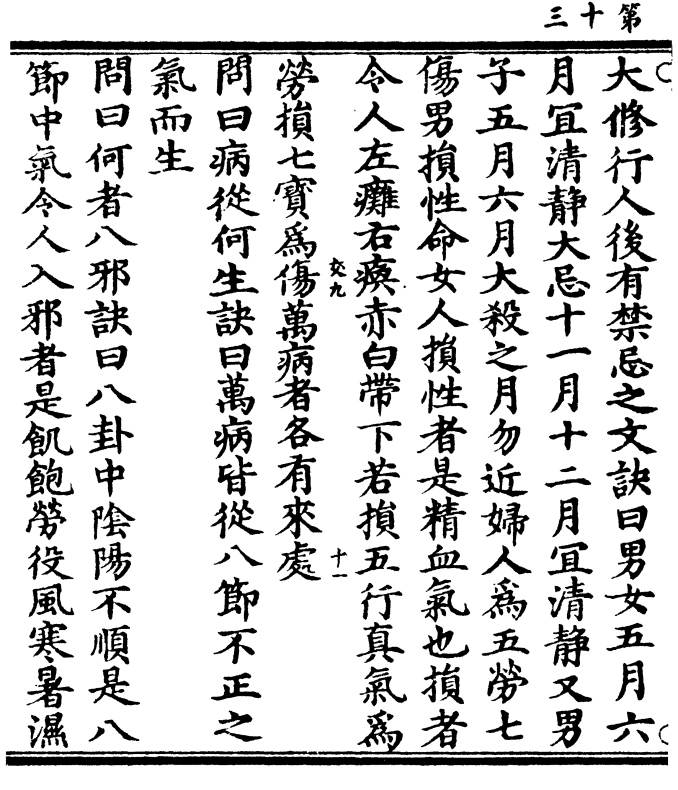 第十三
大修行人後有禁忌之文訣曰男女五月六
月冝清静大忌十一月十二月冝清静又男
子五月六月大殺之月勿近婦人爲五勞七
傷男損性命女人損性者是精血氣也損者
令人左癱右瘓赤白帶下若損五行真氣爲
交九
十一
勞損七寳爲傷萬病者各有來處
問曰病從何生訣曰萬病皆從八節不正之
氣而生
問曰何者八邪訣曰八卦中隂陽不順是八
節中氣令人入邪者是飢飽勞役風寒暑濕